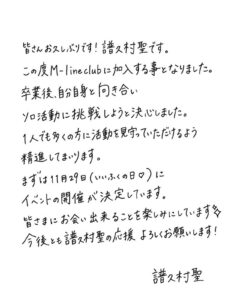 皆さんお久しぶりです！譜久村聖です。
この度M-line clubに加入する事となりました。
卒業後、自分自身と向き合い
ソロ活動に挑戦しようと決心しました。
1人でも多くの方に活動を見守っていただけるよう
精進してまいります。
まずは11月29日(いいふくの日♡)に
イベントの開催が決定しています。
皆さまにお会い出来ることを楽しみにしています
今後とも譜久村聖の応援よろしくお願いします！
譜久村聖